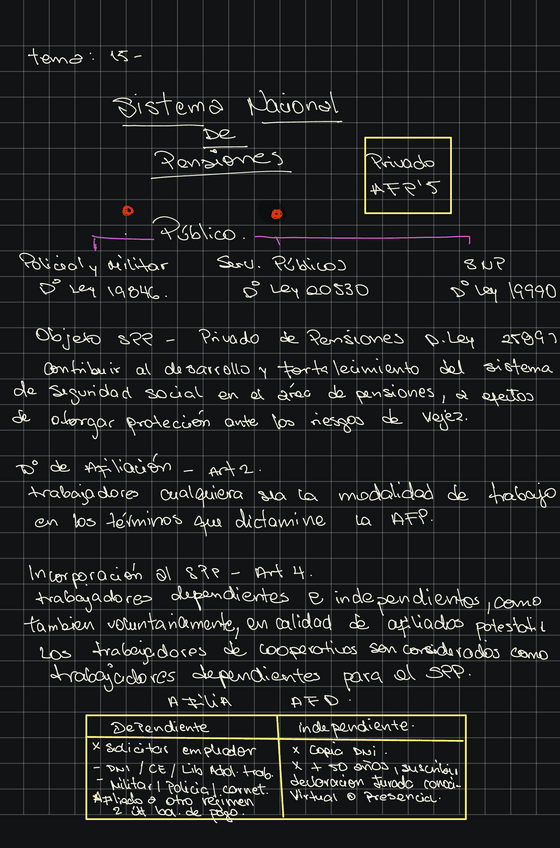 tema: 15-
Sistema Nacional
De
Pensiones
Privado
AFP'S
Público.
Policial y Militar
D° Ley 19846.
Serv. Públicos
D° Ley 20530
SNP
D° Ley 19990
Objeto SPP - Privado de Pensiones D.Ley 25897
contribuir al desarrollo y fortalecimiento del sistema
de seguridad social en el área de pensiones, a efectos
de otorgar protección ante los riesgos de vejez.
D° de Afiliación - Art 2.
trabajadores cualquiera sea la modalidad de trabajo
en los términos que dictamine la AFP.
Incorporación al SPP - Art 4.
trabajadores dependientes e independientes, como
tambien voluntariamente, en calidad de afiliados potestati
Los trabajadores de cooperativas son considerados como
trabajadores dependientes para el SPP.
Dependiente
independiente.
x Solicitar empleador
- DNI / CE / Lib Adol. trab.
- Militar / Policia / carnet.
Afiliado a otro régimen
2 últ bol. de pago.
x Copia DNI.
x + 50 años, suscribir,
declaracion Jurada
Virtual o Presencial.